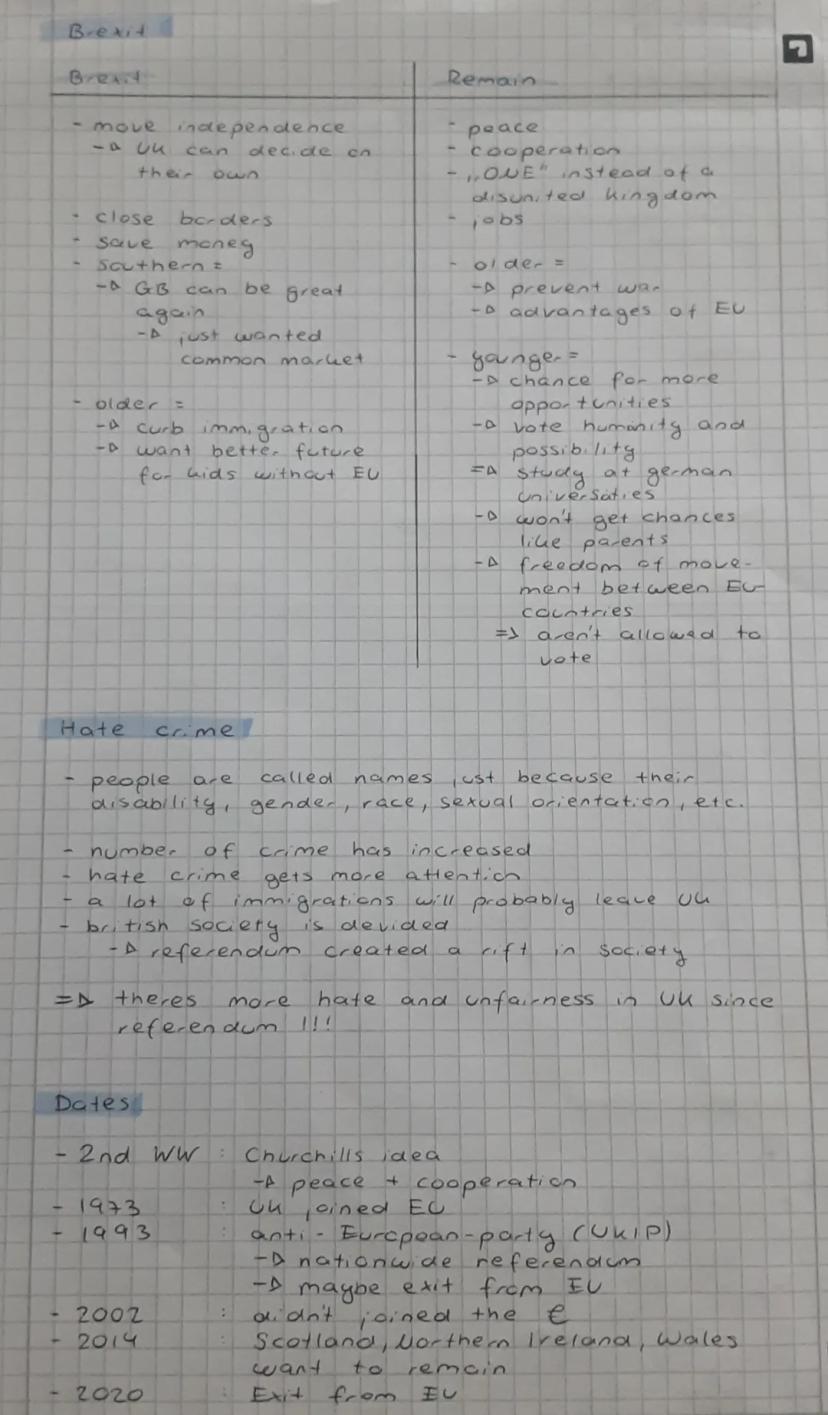 Brexit
Brexit
- move independence
-▷ UK can decide on
their own
- close borders
- save money
- southern =
-▷ GB can be great
again
-▷ just wanted
common market
- older =
-▷ curb immigration
-▷ want better future
for kids without EU
Remain
- peace
- cooperation
- „ONE" instead of a
disunited kingdom
- jobs
- older =
-▷ prevent war
-▷ advantages of EU
- younger =
-▷ chance for more
opportunities
-▷ vote humanity and
possibility
=▷ study at german
universaties
-▷ won't get chances
like parents
-▷ freedom of move-
ment between EU-
countries
=> aren't allowed to
vote
Hate crime
- people are called names just because their
disability, gender, race, sexual orientation, etc.
- number of crime has increased
- hate crime gets more attention
- a lot of immigrations will probably leave UK
- british society is devided
-▷ referendum created a rift in society
=▷ theres more hate and unfairness in UK since
referendum !!!
Dates
- 2nd WW : Churchills idea
-▷ peace + cooperation
- 1973 : UK joined EU
- 1993 : anti-European-party (UKIP)
-▷ nationwide referendum
-▷ maybe exit from EU
- 2002 : didn't joined the €
- 2014 : Scotland, Northern Ireland, Wales
want to remain
- 2020 : Exit from EU